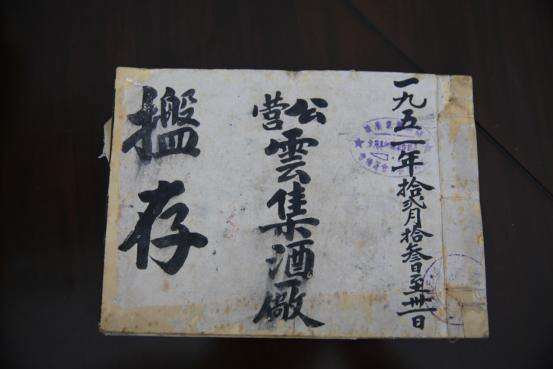 一九五一年拾貳月拾叁日至卅一日
公營
雲集酒廠
盤存